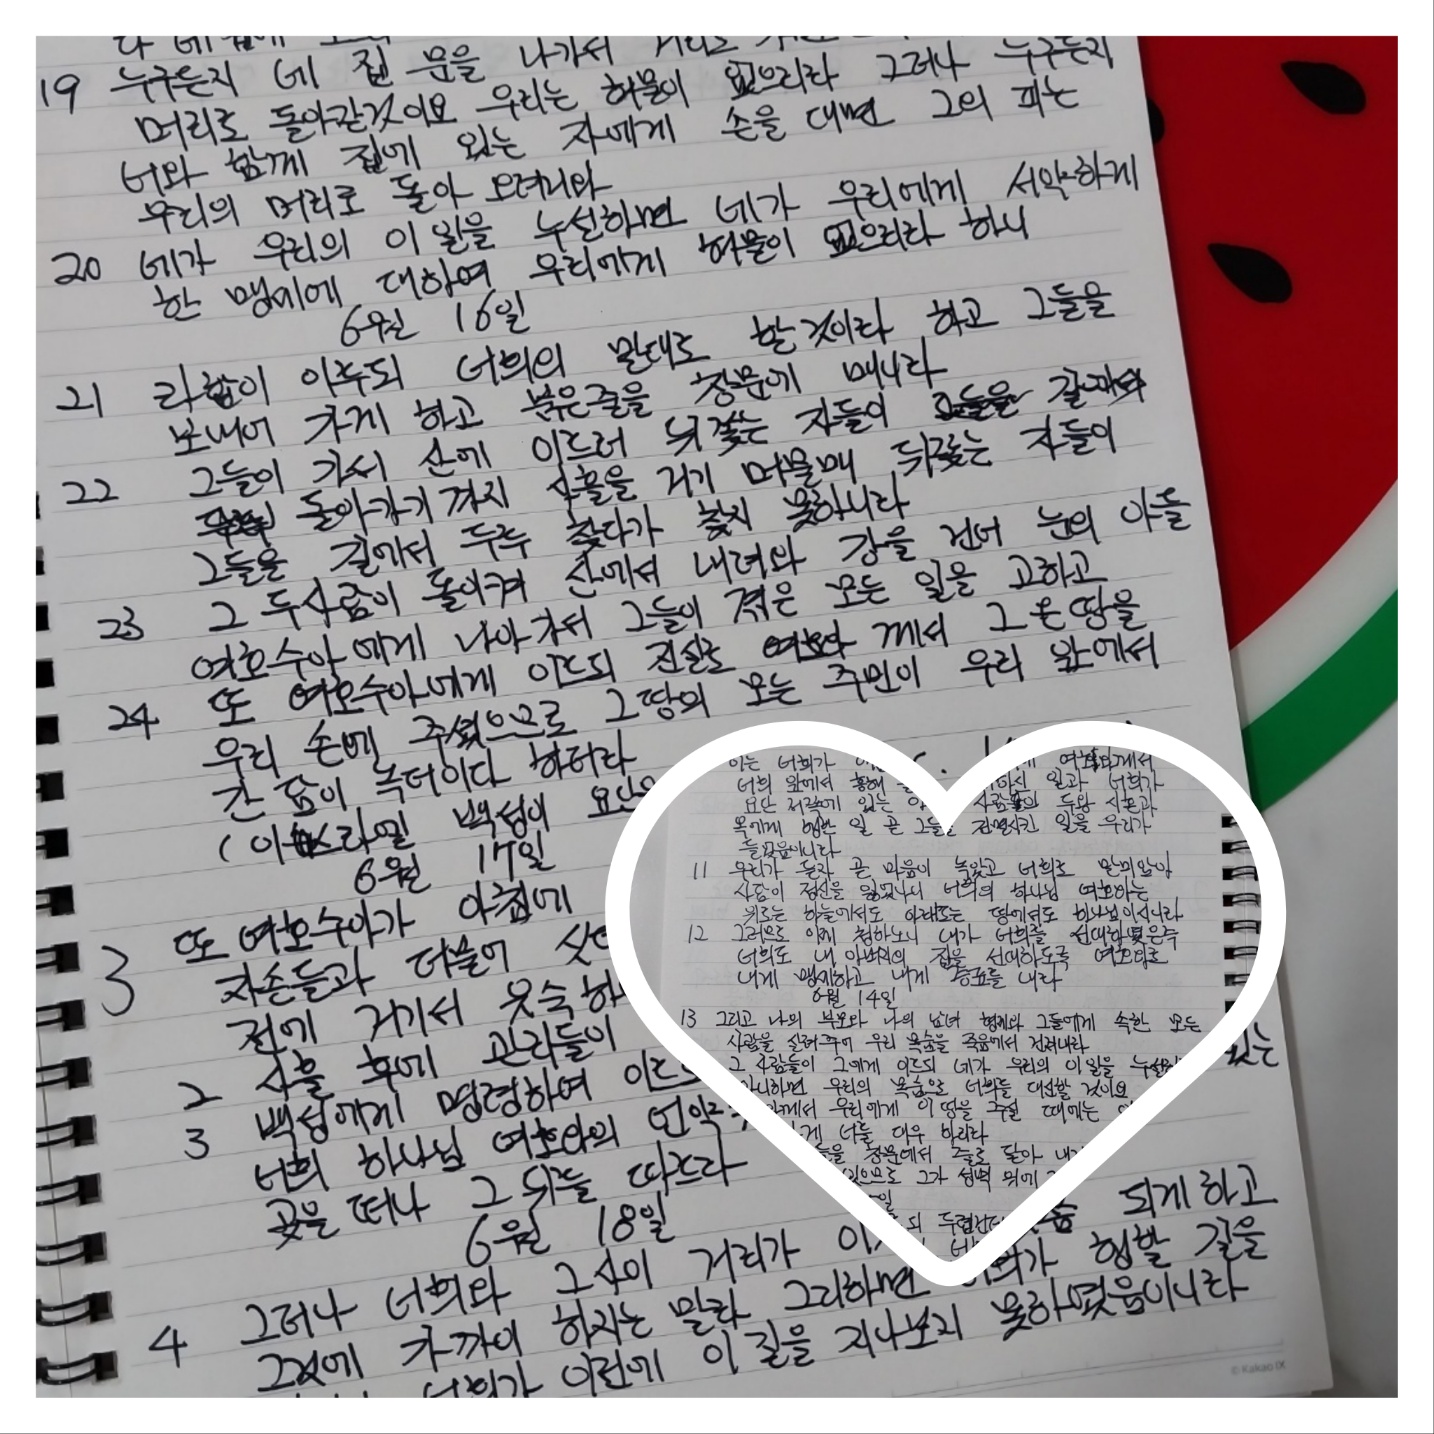 19 누구든지 네 집 문을 나가서 거리로
머리로 돌아갈것이요 우리는 허물이 없으리라 그러나 누구든지
너와 함께 집에 있는 자에게 손을 대면 그의 피는
우리의 머리로 돌아 오려니와
20 네가 우리의 이 일을 누설하면 네가 우리에게 서약하게
한 맹세에 대하여 우리에게 허물이 없으리라 하니
6월 16일
21 라합이 이르되 너희의 말대로 할것이라 하고 그들을
보내어 가게 하고 붉은줄을 창문에 매니라
22 그들이 가서 산에 이르러 뒤쫓는 자들이
돌아가기까지 사흘을 거기 머물매 뒤쫓는 자들이
그들을 길에서 두루 찾다가 찾지 못하니라
23 그 두사람이 돌이켜 산에서 내려와 강을 건너 눈의 아들
여호수아에게 나아가서 그들이 겪은 모든 일을 고하고
24 또 여호수아에게 이르되 진실로 여호와께서 그 온땅을
우리 손에 주셨으므로 그땅의 모든 주민이 우리 앞에서
간담이 녹더이다 하더라
(이스라엘 백성이 요단을
6월 17일
3 또 여호수아가 아침에
자손들과 더불어
전에 거기서 유숙하
2 사흘 후에 관리들이
3 백성에게 명령하여 이르
너희 하나님 여호와의 언약
곳을 떠나 그 뒤를 따르라
6월 18일
4 그러나 너희와 그사이 거리가
그것에 가까이 하지는 말라 그리하면 너희가 행할 길을
너희가 이전에 이 길을 지나보지 못하였음이니라
있는
되게하고
이는 너희가 여호와께서
너희 앞에서 홍해 하신 일과 너희가
요단 저쪽에 있는 사람들의 두왕 시혼과
옥에게 행한 일 곧 그들을 전멸시킨 일을 우리가
들었음이니라
11 우리가 듣자 곧 마음이 녹았고 너희로 말미암아
사람이 정신을 잃었나니 너희의 하나님 여호와는
위로는 하늘에서도 아래로는 땅에서도 하나님이시니라
12 그러므로 이제 청하노니 내가 너희를 선대하였은즉
너희도 내 아버지의 집을 선대하도록 여호와로
내게 맹세하고 내게 증표를 내라
6월 14일
13 그리고 나의 부모와 나의 남녀 형제와 그들에게 속한 모든
사람을 살려주어 우리 목숨을 죽음에서 건져내라
그 사람들이 그에게 이르되 네가 우리의 이일을 누설하지
아니하면 우리의 목숨으로 너희를 대신할 것이요
우리에게 이 땅을 주실 때에는
너를 대우 하리라
창문에서 줄로 달아
그가 성벽 위에
두렵건대
© Kakao IX